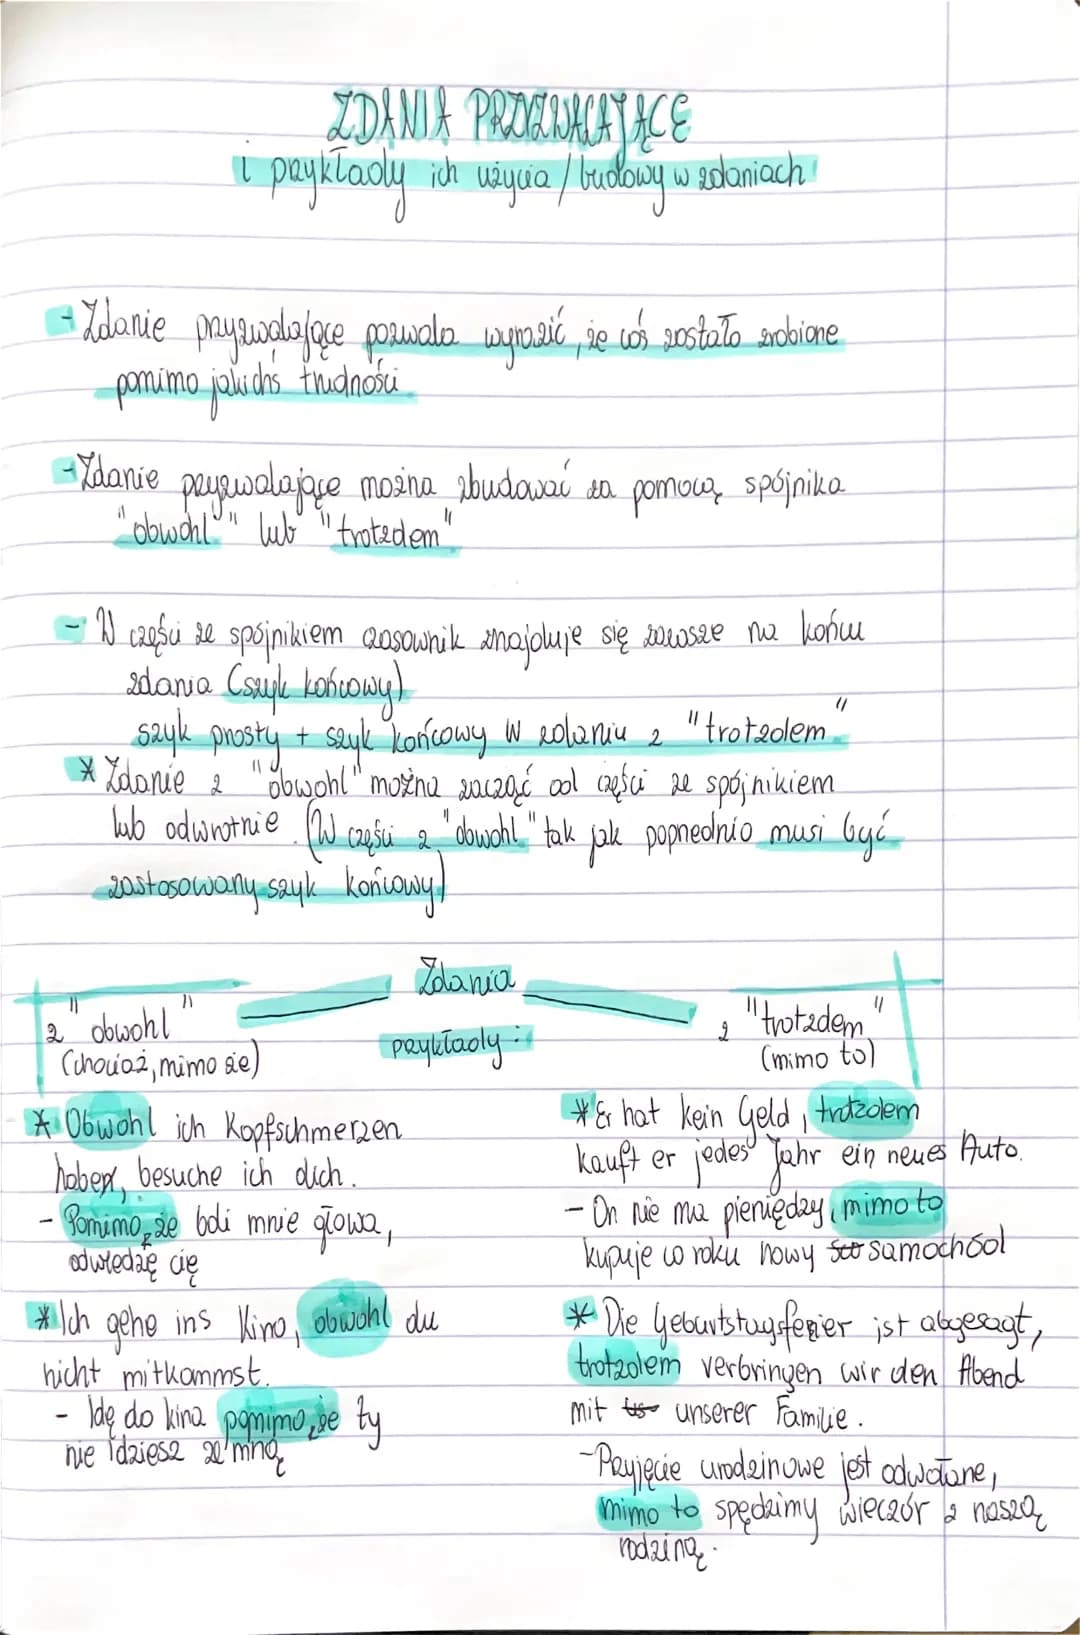 ZDANIA PRZYZWALAJĄCE
i przykłady ich użycia / budowy w zdaniach
- Zdanie przyzwalające pozwala wyrazić, że coś zostało zrobione
pomimo jakichś trudności
- Zdanie przyzwalające można zbudować za pomocą spójnika
"obwohl" lub "trotzdem"
- W części ze spójnikiem czasownik znajduje się zawsze na końcu
zdania (szyk końcowy)
szyk prosty + szyk końcowy w zdaniu z "trotzdem"
* Zdanie z "obwohl" można zacząć od części ze spójnikiem
lub odwrotnie. (W części z "obwohl" tak jak poprzednio musi być
zastosowany szyk końcowy)
Zdania
przykłady:
z "obwohl"
(chociaż, mimo że)
* Obwohl ich Kopfschmerzen
habe, besuche ich dich.
- Pomimo, że boli mnie głowa,
odwiedzę cię
* Ich gehe ins Kino, obwohl du
nicht mitkommst.
- Idę do kina pomimo, że ty
nie idziesz ze mną
z "trotzdem"
(mimo to)
* Er hat kein Geld, trotzdem
kauft er jedes Jahr ein neues Auto.
- On nie ma pieniędzy, mimo to
kupuje co roku nowy samochód
* Die Geburtstagsfeier ist abgesagt,
trotzdem verbringen wir den Abend
mit unserer Familie.
- Przyjęcie urodzinowe jest odwołane,
mimo to spędzimy wieczór z naszą
rodziną.